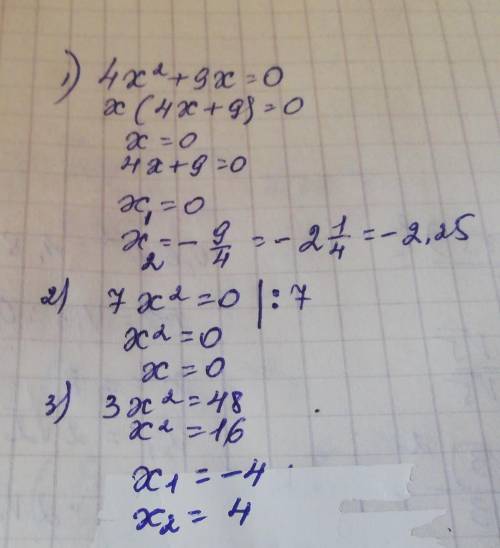 1) 4x² + 9x = 0
x(4x+9) = 0
x = 0
4x+9 = 0
x₁ = 0
x₂ = - 9/4 = - 2 1/4 = - 2,25
2) 7x² = 0 | : 7
x² = 0
x = 0
3) 3x² = 48
x² = 16
x₁ = -4
x₂ = 4